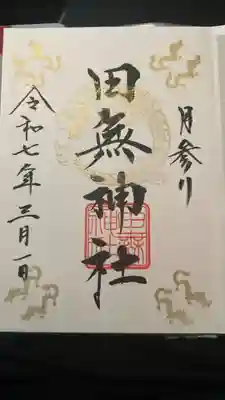 月参り
田無神社
令和七年三月一日